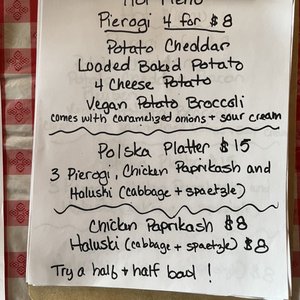 Hot Menu
Pierogi 4 for $8
Potato Cheddar
Loaded Baked Potato
4 Cheese Potato
Vegan Potato Broccoli
comes with caramelized onions + sour cream
Polska Platter $15
3 Pierogi, Chicken Paprikash and
Haluski (cabbage + spaetzle)
Chicken Paprikash $8
Haluski (cabbage + spaetzle) $8
Try a half + half !